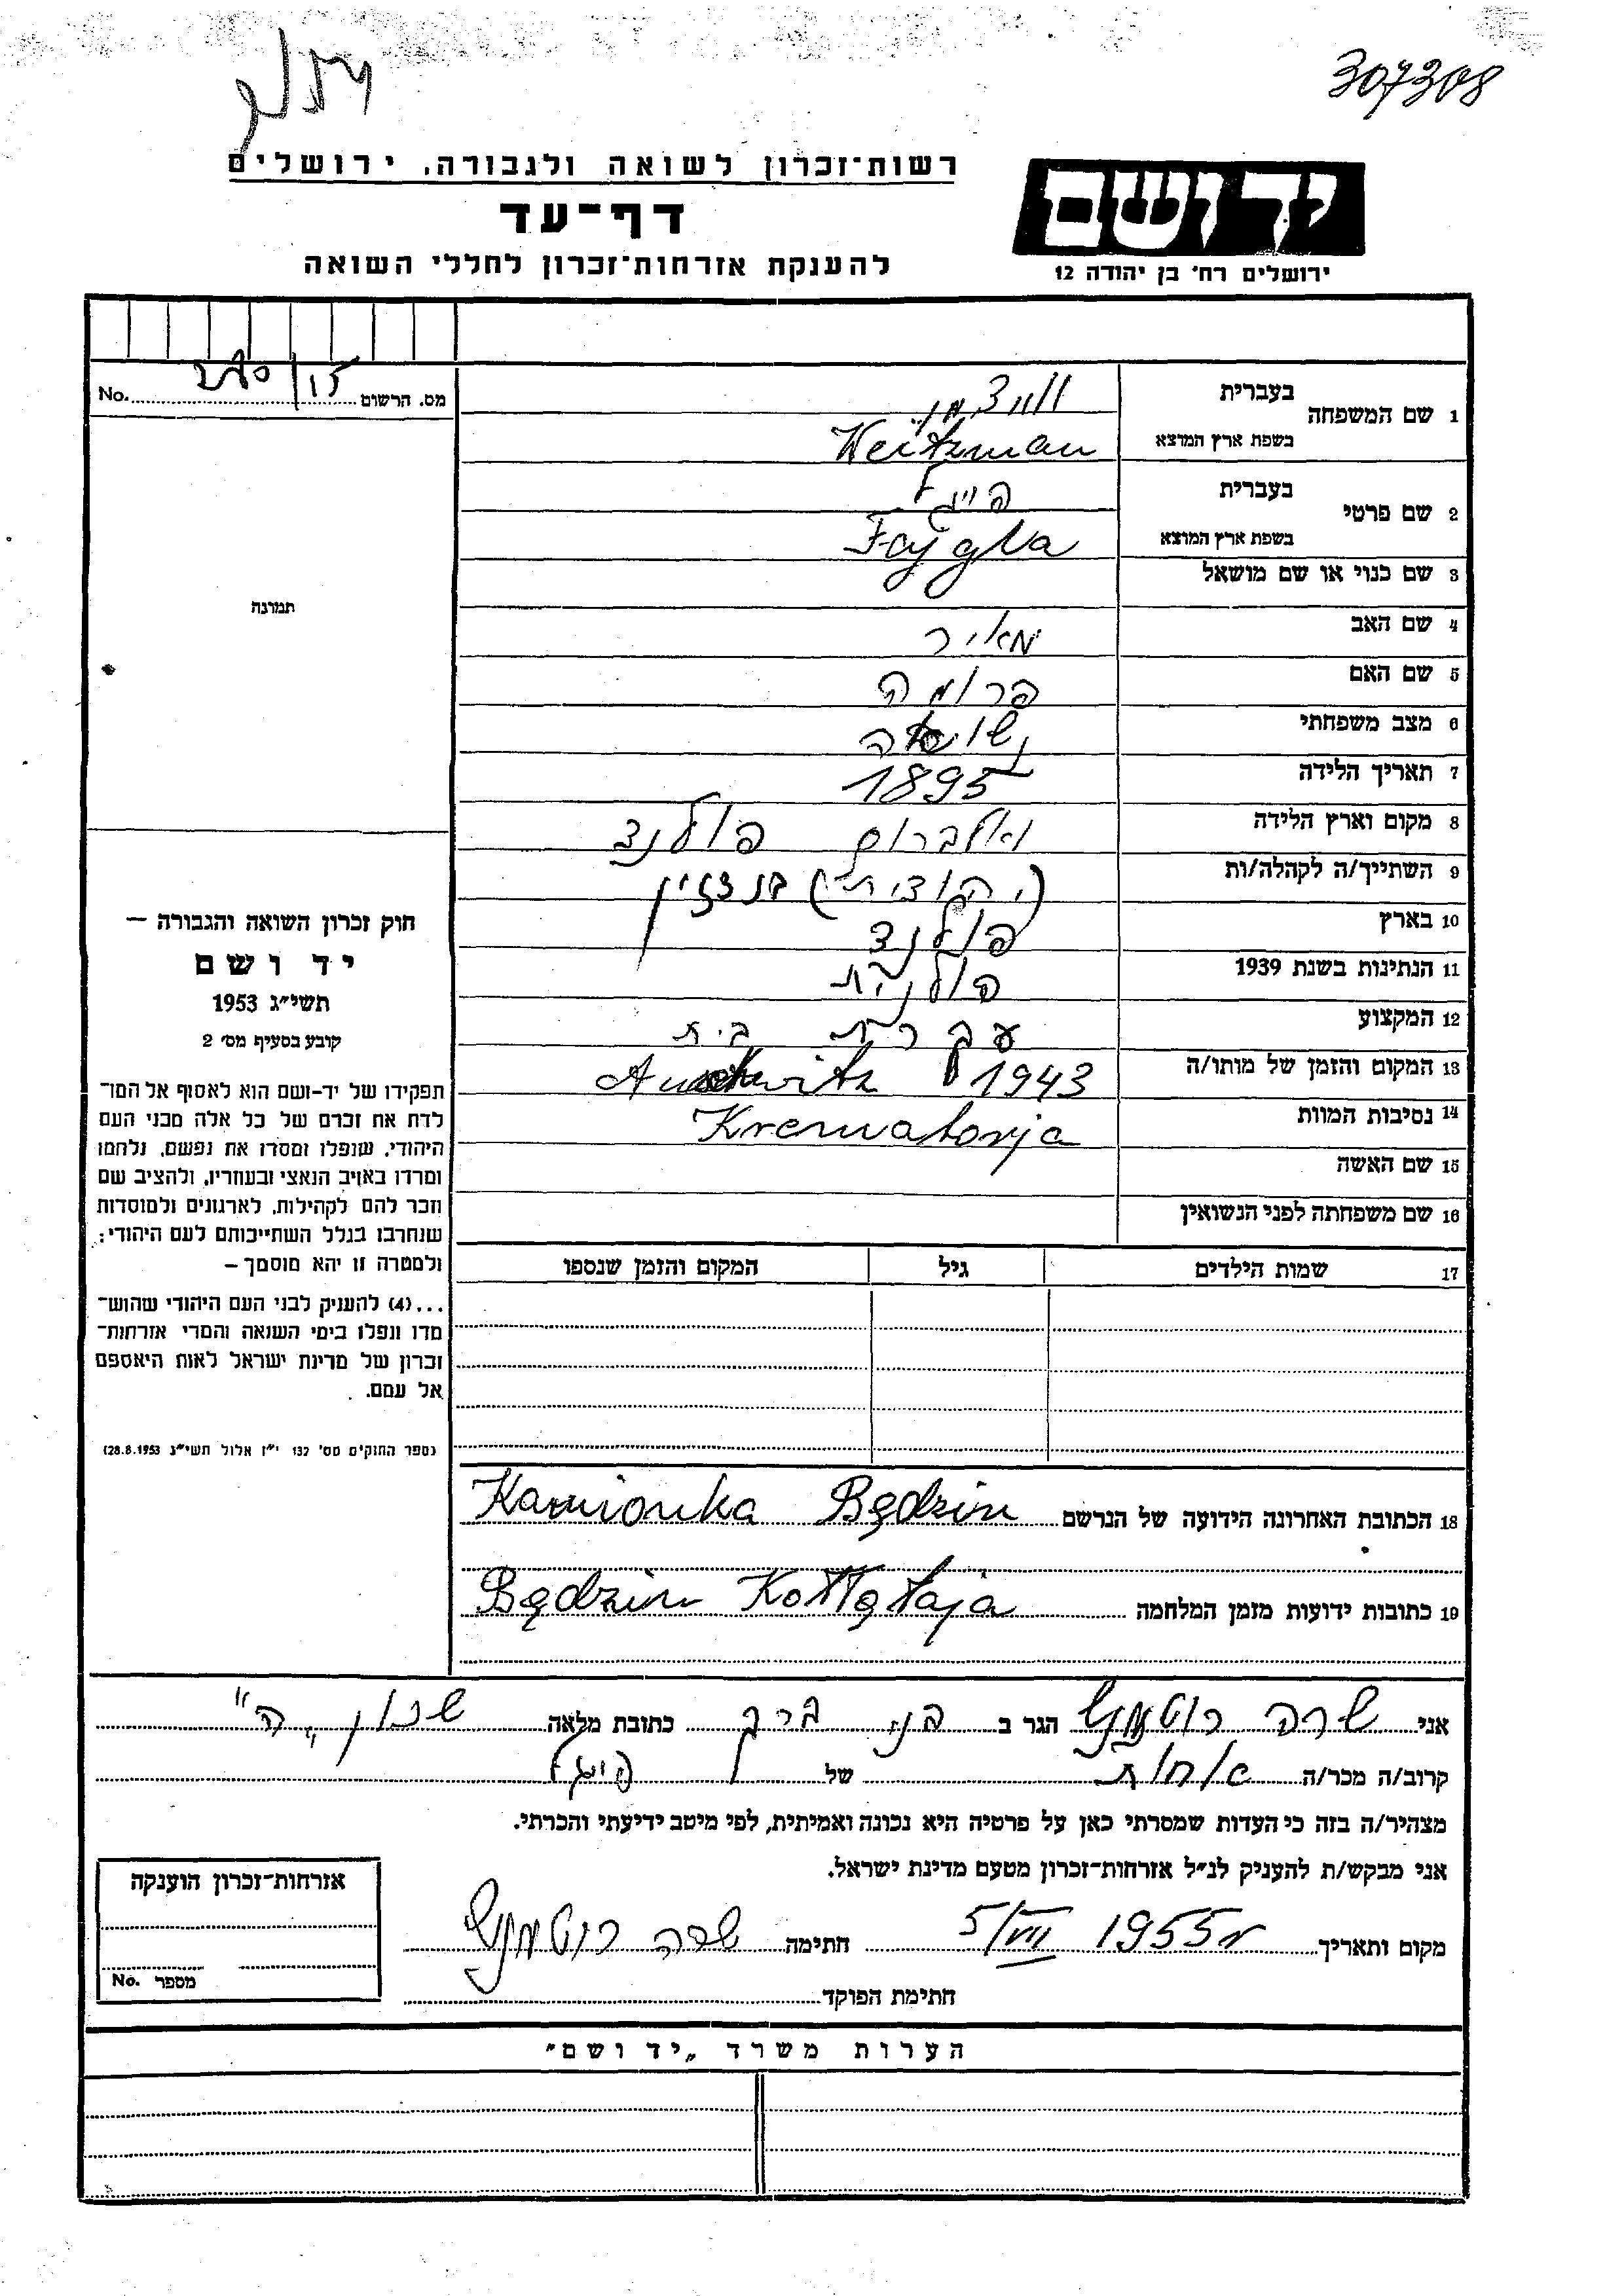 307308
רשות־זכרון לשואה ולגבורה, ירושלים
יד ושם
דף־עד
להענקת אזרחות־זכרון לחללי השואה
ירושלים רח' בן יהודה 12
מס. הרשום No.
1 שם המשפחה בעברית וויצמן
בשפת ארץ המוצא Weitzman
2 שם פרטי בעברית פייגל
בשפת ארץ המוצא Fajgla
3 שם כנוי או שם מושאל
4 שם האב מאיר
5 שם האם פרומה
6 מצב משפחתי נשואה
7 תאריך הלידה 1895
8 מקום וארץ הלידה וולברום פולנד
9 השתייך/ה לקהלה/ות (יהודית) בנדזין
10 בארץ פולנד
11 הנתינות בשנת 1939 פולנית
12 המקצוע עקרת בית
13 המקום והזמן של מותו/ה 1943 Auschwitz
14 נסיבות המוות Krematorja
15 שם האשה
16 שם משפחתה לפני הנשואין
17 שמות הילדים גיל המקום והזמן שנספו
תמונה
חוק זכרון השואה והגבורה —
יד ושם
תשי״ג 1953
קובע בסעיף מס׳ 2
תפקידו של יד־ושם הוא לאסוף אל המו־
לדת את זכרם של כל אלה מבני העם
היהודי, שנפלו ומסרו את נפשם, נלחמו
ומרדו באויב הנאצי ובעוזריו, ולהציב שם
וזכר להם לקהילות, לארגונים ולמוסדות
שנחרבו בגלל השתייכותם לעם היהודי;
ולמטרה זו יהא מוסמך —
...(4) להעניק לבני העם היהודי שהוש־
מדו ונפלו בימי השואה והמרי אזרחות־
זכרון של מדינת ישראל לאות היאספם
אל עמם.
(ספר החוקים מס׳ 132 י״ז אלול תשי״ג 28.8.1953)
18 הכתובת האחרונה הידועה של הנרשם Kamionka Będzin
19 כתובות ידועות מזמן המלחמה Będzin Kołłątaja
אני שרה רוטמנש הגר ב בני ברק כתובת מלאה שכון „ה"
קרוב/ה מכר/ה אחות של פייגל
מצהיר/ה בזה כי העדות שמסרתי כאן על פרטיה היא נכונה ואמיתית, לפי מיטב ידיעתי והכרתי.
אני מבקש/ת להעניק לנ״ל אזרחות־זכרון מטעם מדינת ישראל.
מקום ותאריך 5/VII 1955 חתימה שרה רוטמנש
חתימת הפוקד
אזרחות־זכרון הוענקה
מספר No.
הערות משרד „יד ושם"